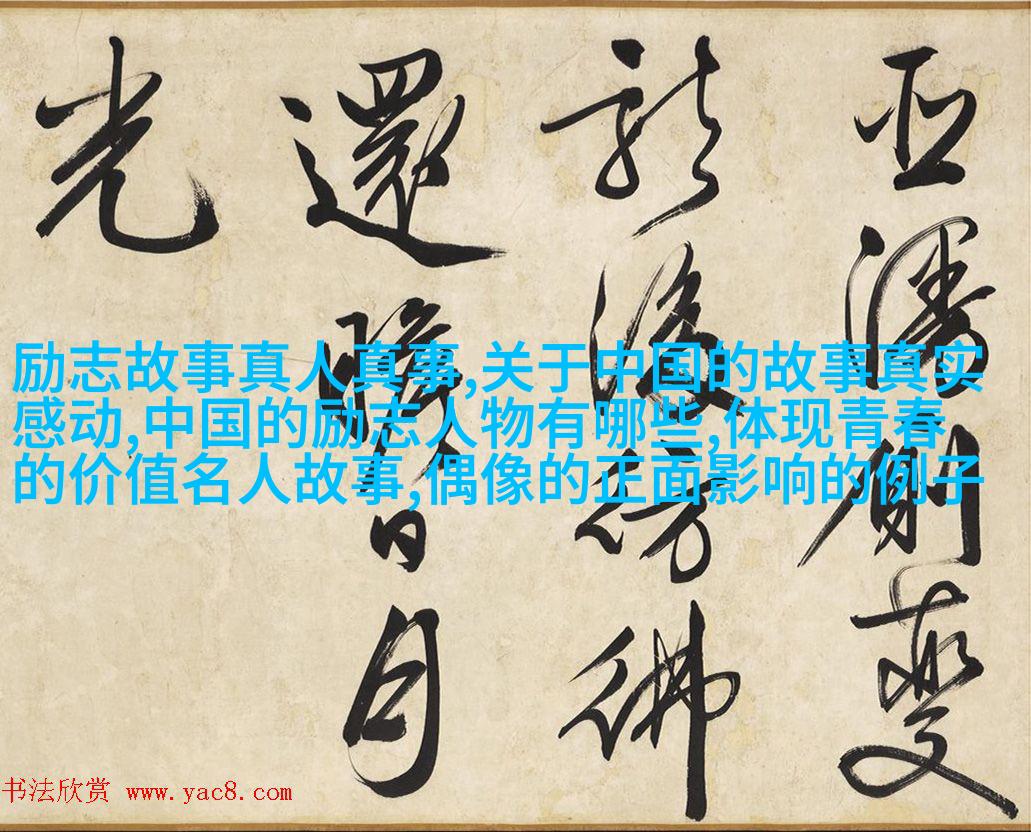 變
彷彿
還瞻日月
光
励志故事真人真事,关于中国的故事真实
感动,中国的励志人物有哪些,体现青春
的价值名人故事,偶像的正面影响的例子
书法欣赏 www.yac8.com